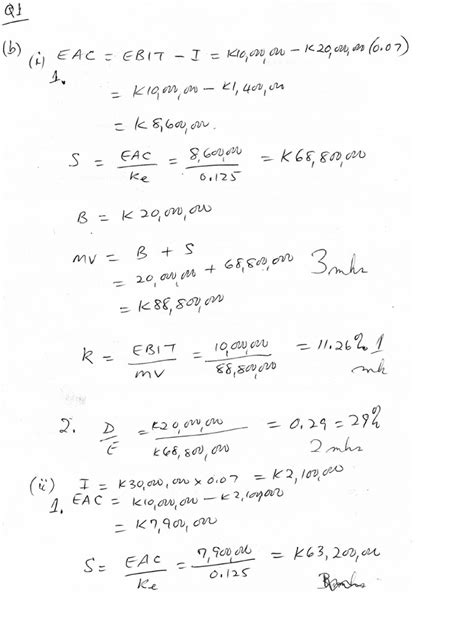 Q1
(b) (i) EAC = EBIT - I = K10,000,000 - K20,000,000 (0.07)
1.
= K10,000,000 - K1,400,000
= K8,600,000.
S = EAC/Ke = 8,600,000/0.125 = K68,800,000
B = K20,000,000
MV = B + S
= 20,000,000 + 68,800,000 3 mks
= K88,800,000
K = EBIT/MV = 10,000,000/88,800,000 = 11.26% 1 mk
2. D/E = K20,000,000/K68,800,000 = 0.29 = 29%
2 mks
(ii) I = K30,000,000 x 0.07 = K2,100,000
1. EAC = K10,000,000 - K2,100,000
= K7,900,000
S = EAC/Ke = 7,900,000/0.125 = K63,200,000